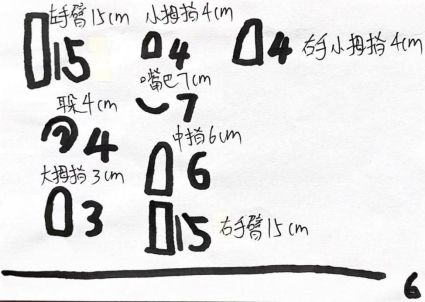 左手臂15cm
15
小拇指4cm
4
4
右手小拇指4cm
嘴巴7cm
7
耳朵4cm
4
中指6cm
6
大拇指3cm
3
15
右手臂15cm
6